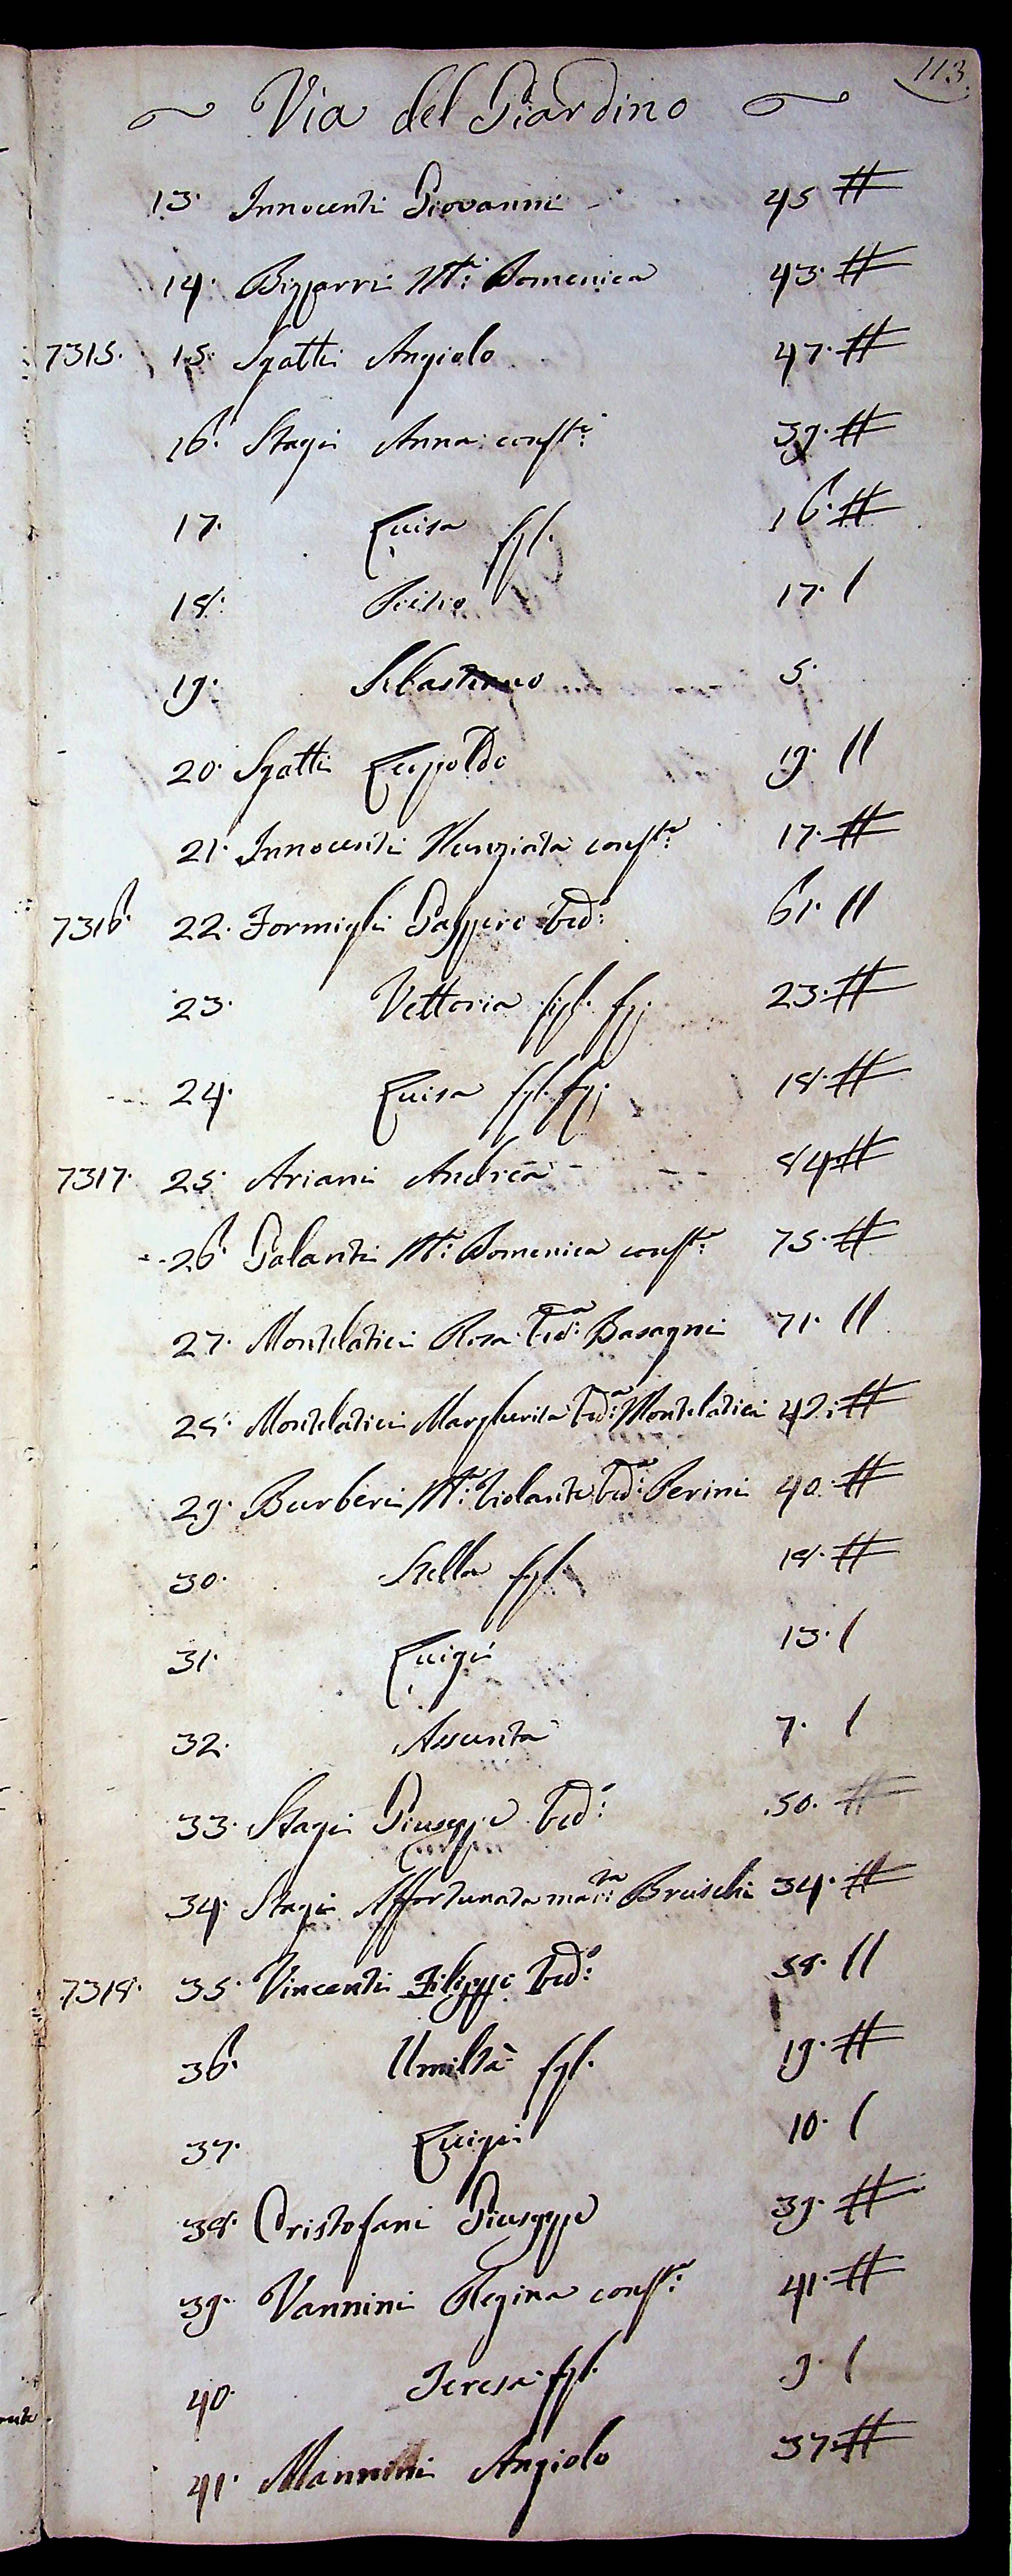 113.
Via del Giardino
13. Innocenti Giovanni 45 #
14. Bizzarri Ma: Domenica 43. #
7315. 15. Sgatti Angiolo 47. #
16. Stagi Anna conste: 39. #
17. Luisa figl. 16. #
18. Pietro 17. /
19. Sebastiano 5.
20. Sgatti Leopoldo 19. //
21. Innocenti Nunziata conste: 17. #
7316. 22. Formigli Gasppero Vedo: 61. //
23. Vettoria figl. fj. 23. #
24. Luisa figl. fj. 18. #
7317. 25. Ariani Andrea 84. #
26. Galanti Ma: Domenica conste: 75. #
27. Montelatici Rosa Veda: Basagni 71. //
28. Montelatici Margherita Veda: Montelatici 42. #
29. Burberi Ma: Violante Veda: Perini 40. #
30. Stella figl. 18. #
31. Luigi 13. /
32. Assunta 7. /
33. Stagi Giuseppe Vedo: 50. #
34. Stagi Affortunata marta: Bruschi 34. #
7318. 35. Vincenti Filippo Vedo: 58. //
36. Umiltà figl. 19. #
37. Luigi 10. /
38. Cristofani Giuseppe 39. #
39. Vannini Regina conste: 41. #
40. Teresa figl. 9. /
41. Angiolo 37. #